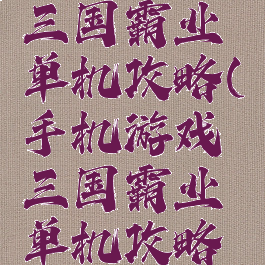 三国霸业
单机攻略(
手机游戏
三国霸业
单机攻略